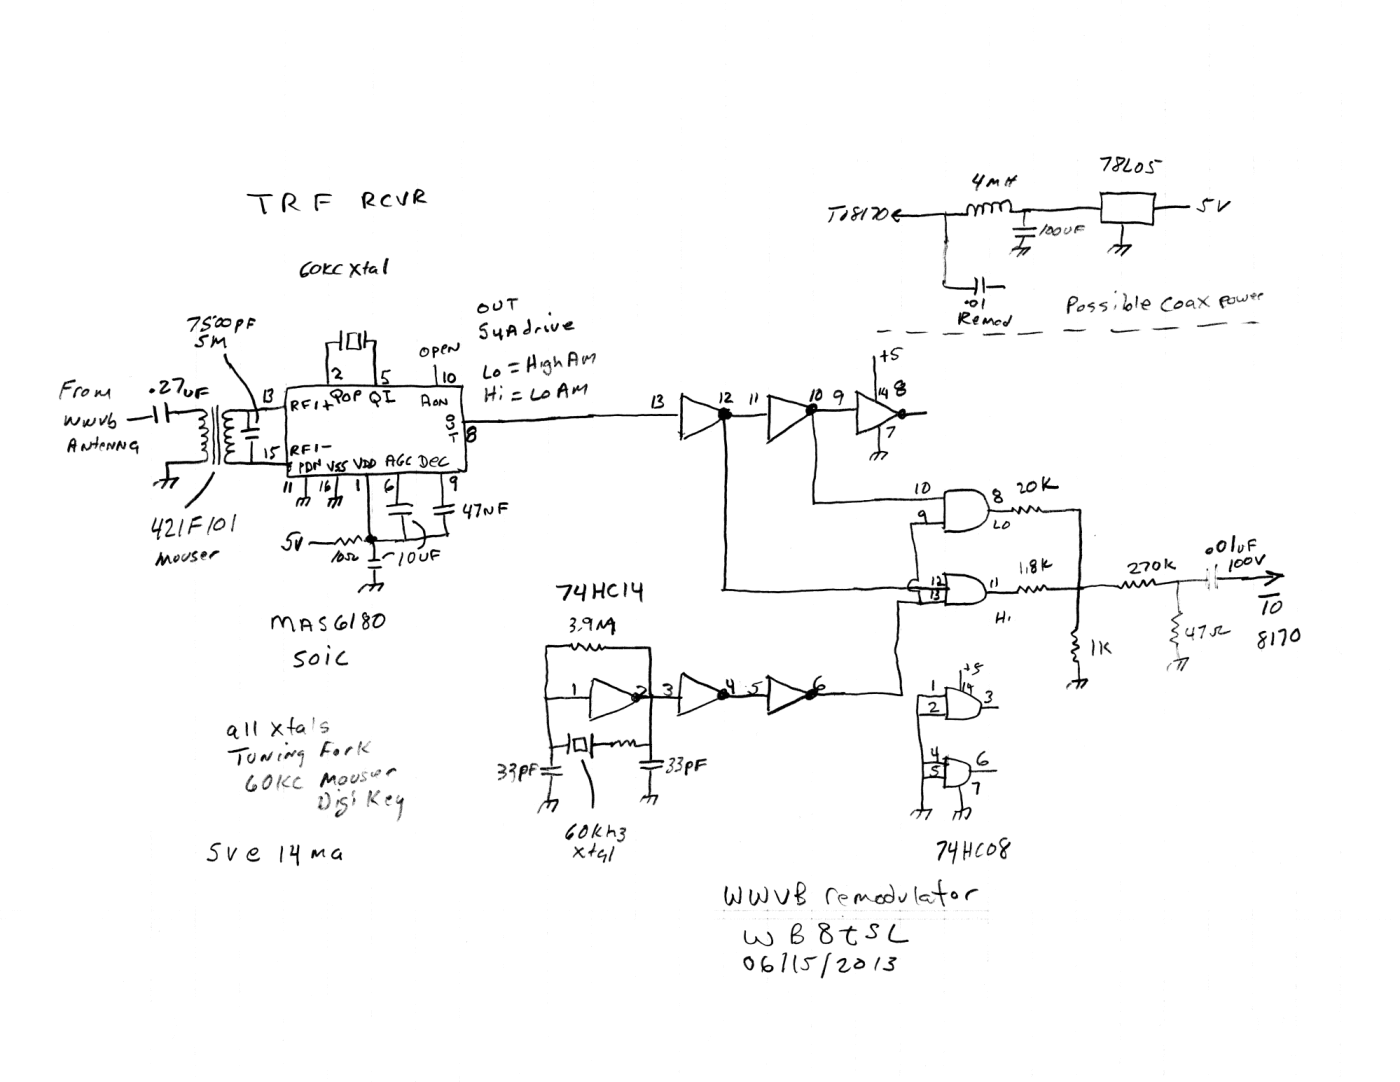 TRF RCVR
60KC xtal
7500PF
5M
From
WWVB
Antenna
.27uF
13
15
RFI+
RFI-
2
5
QOP QI
OPEN
10
AON
OUT
8
PDN VSS VDD AGC DEC
11 16 1 6 9
47NF
5V
10Ω
10UF
421F101
Mouser
MAS6180
SOIC
OUT
5uA drive
Lo = High AM
Hi = Lo AM
13 12 11 10 9 8
+5
14
7
To 8170
4MH
100UF
78L05
5V
.01
Remod
Possible Coax power
10
9
8
LO
20K
12
13
11
Hi
1.8K
1K
270K
47Ω
.01uF
100V
TO
8170
74HC14
3.9M
1 2 3 4 5 6
33PF
33PF
60Khz
xtal
+5
14
1
2
3
4
5
6
7
74HC08
all xtals
Tuning Fork
60KC Mouser
Digi Key
5v @ 14 ma
WWVB remodulator
WB8TSL
06/15/2013